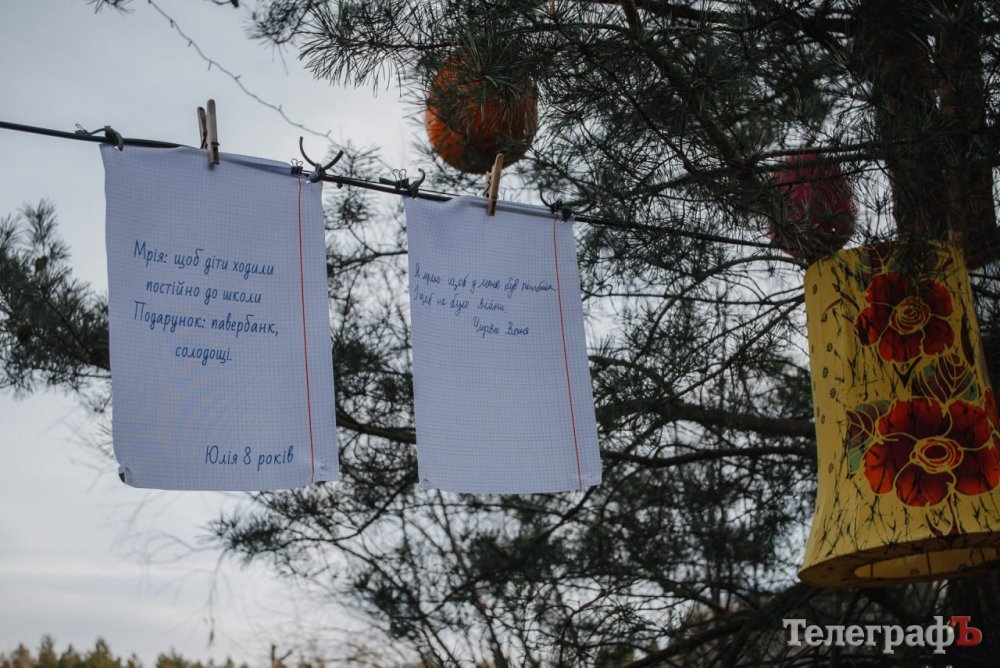 Мрія: щоб діти ходили
постійно до школи
Подарунок: павербанк,
солодощі.
Юлія 8 років
Я мрію щоб у мене був
І щоб не було війни
Чирва Веня
ТелеграфЪ